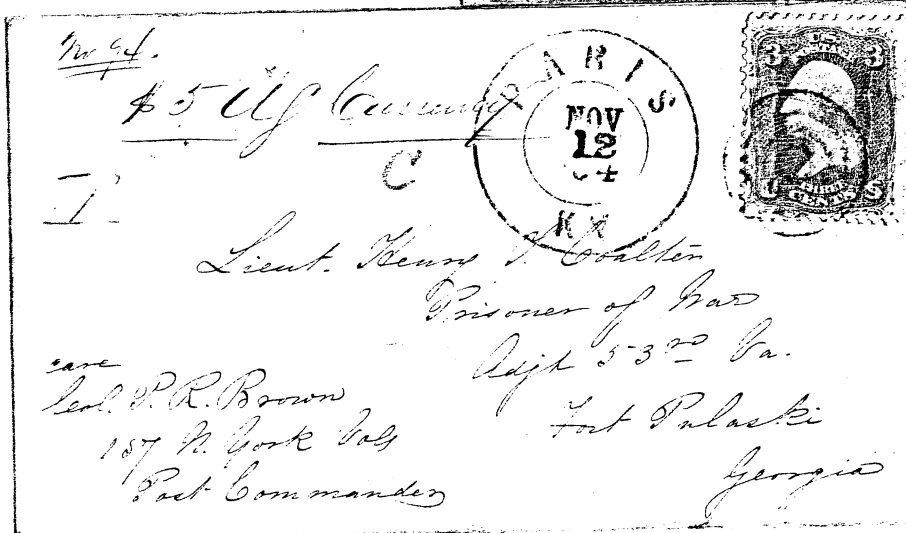 No 94.
$5 US Currency
C
I.
PARIS
NOV
12
64
KY
3 U.S. 3
POSTAGE
Lieut. Henry T. Coalter
Prisoner of War
Adjt 53rd Va.
Fort Pulaski
Georgia
care
Col. P. R. Brown
157 N. York Vols
Post Commander